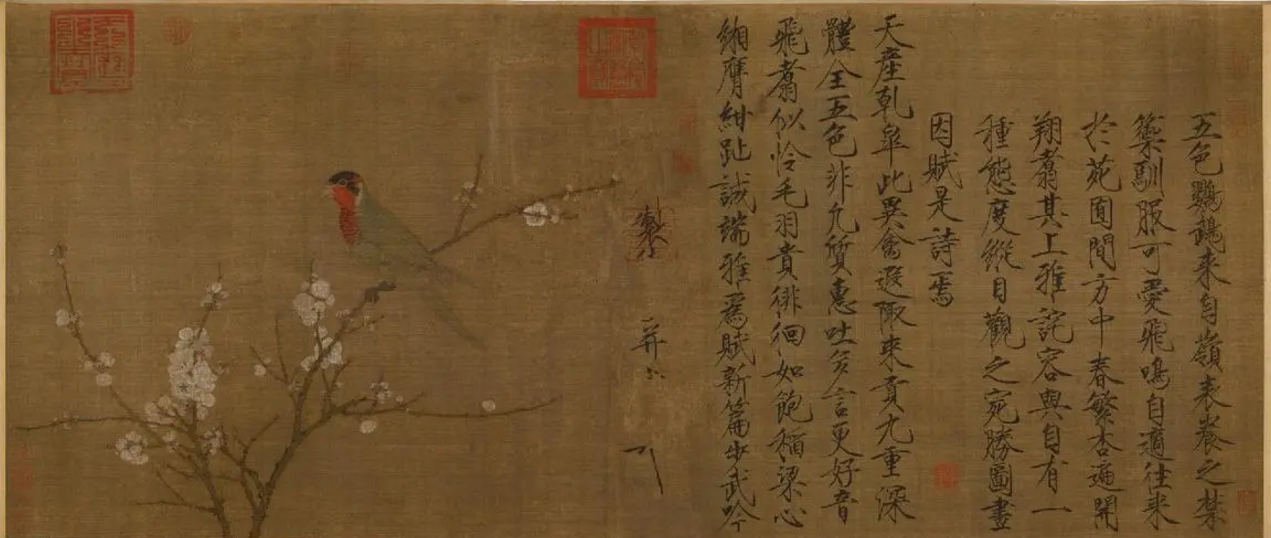 五色鸚鵡來自嶺表養之禁
籞馴服可愛飛鳴自適往來
於苑囿間方中春繁杏遍開
翔翥其上雅詫容與自有一
種態度縱目觀之宛勝圖畫
因賦是詩焉
天產乾皐此異禽遐陬來貢九重深
體全五色非凡質惠吐多言更好音
飛翥似憐毛羽貴徘徊如飽稻粱心
緗膺紺趾誠端雅爲賦新篇步武吟
製
并